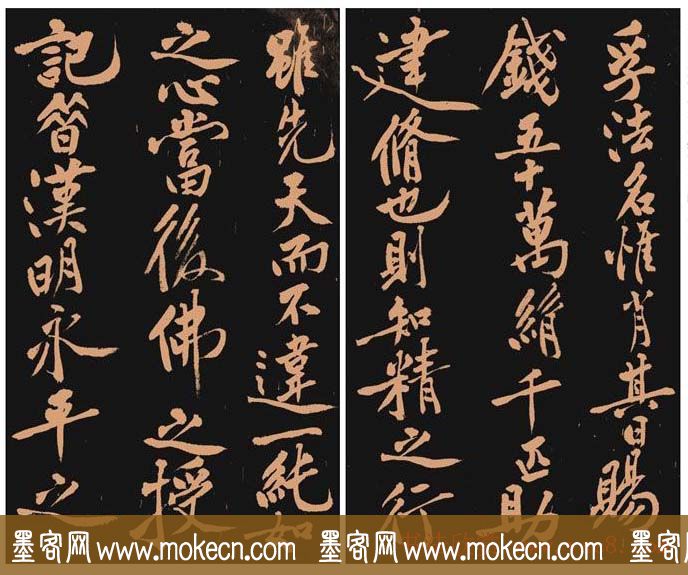 孚法名惟肖其日賜
錢五十萬絹千匹助
建脩也則知精之行
雖先天而不違一純如
之心當後佛之授
記昔漢明永平之
墨客网 www.mokecn.com 墨客网 www.mokecn.com 墨客网